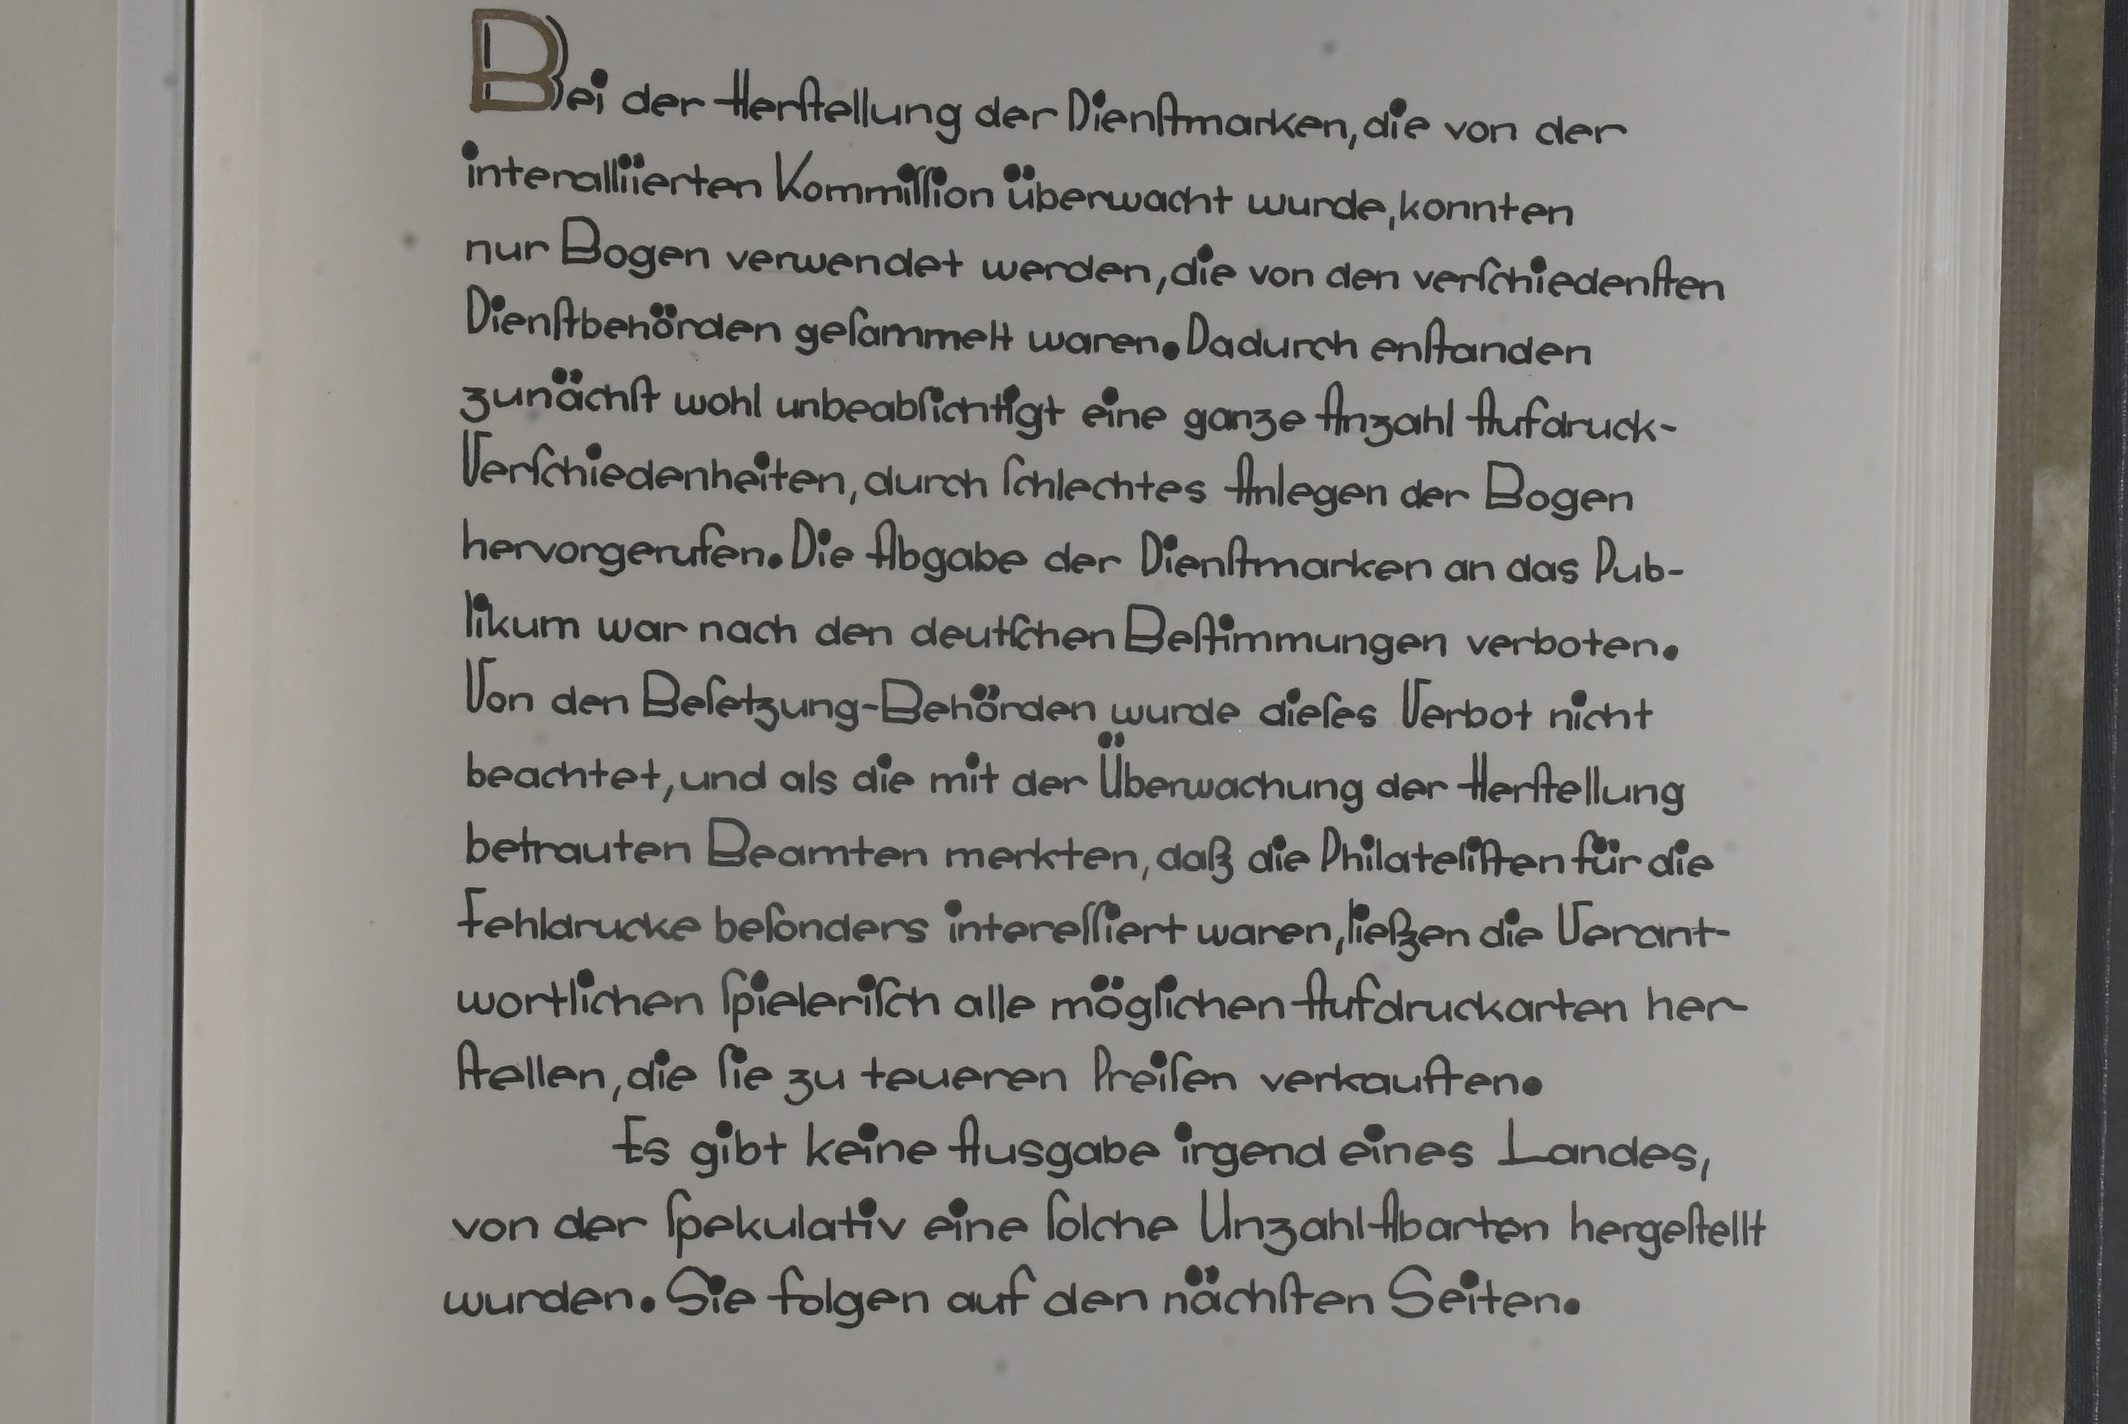 Bei der Herſtellung der Dienſtmarken, die von der
interalliierten Kommiſſion überwacht wurde, konnten
nur Bogen verwendet werden, die von den verſchiedenſten
Dienſtbehörden geſammelt waren. Dadurch enſtanden
zunächſt wohl unbeabſichtigt eine ganze Anzahl Aufdruck-
Verſchiedenheiten, durch ſchlechtes Anlegen der Bogen
hervorgerufen. Die Abgabe der Dienſtmarken an das Pub-
likum war nach den deutſchen Beſtimmungen verboten.
Von den Beſetzung-Behörden wurde dieſes Verbot nicht
beachtet, und als die mit der Überwachung der Herſtellung
betrauten Beamten merkten, daß die Philateliſten für die
Fehldrucke beſonders intereſſiert waren, ließen die Verant-
wortlichen ſpieleriſch alle möglichen Aufdruckarten her-
ſtellen, die ſie zu teueren Preiſen verkauften.
Es gibt keine Ausgabe irgend eines Landes,
von der ſpekulativ eine ſolche Unzahl Abarten hergeſtellt
wurden. Sie folgen auf den nächſten Seiten.